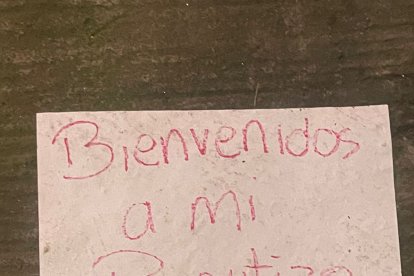 Bienvenidos
a mi